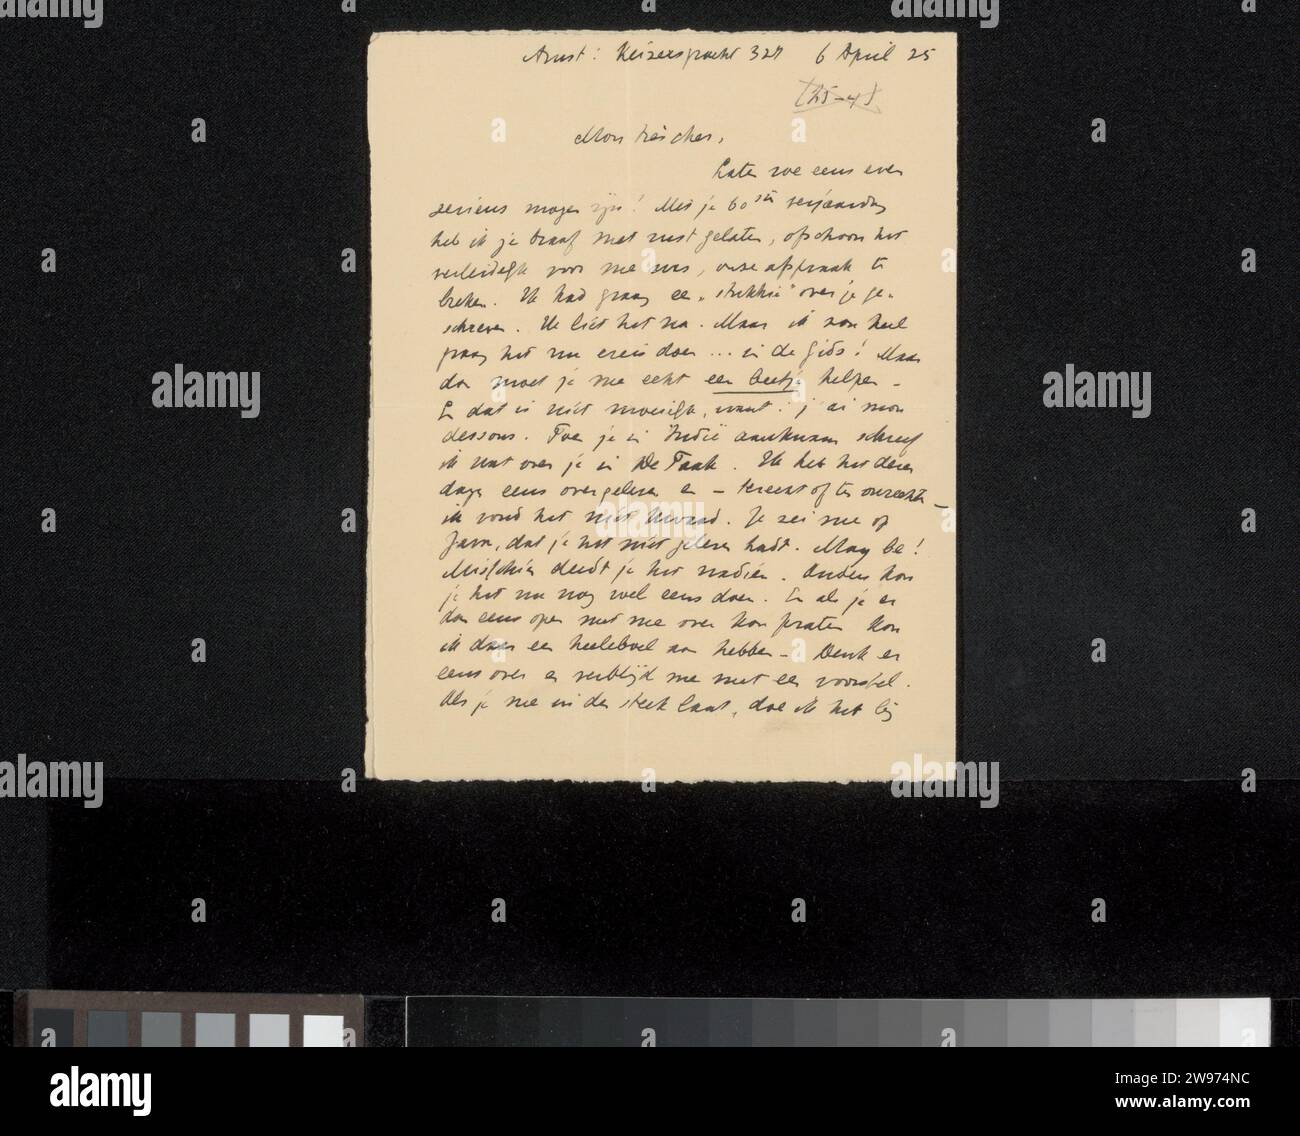 Amst: Keizersgracht 327 6 April 25
(25-4)
Mon très cher,
Laten we eens even
serieus mogen zijn! Met je 60sten verjaardag
heb ik je braaf met rust gelaten, ofschoon het
verleidelijk voor me was, onze afspraak te
breken. Ik had graag een "stukkie" over je ge-
schreven. Ik liet het na. Maar ik zou heel
graag het nu eens doen ... in de Gids! Maar
dan moet je me echt een beetje helpen -
En dat is niet moeilijk, want: j'ai mon
dessous. Toen je in Indië aankwam schreef
ik wat over je in De Taak. Ik heb het dezer
dagen eens overgelezen en - terecht of ten onrechte -
ik vond het niet kwaad. Je zei me op
Java, dat je het niet gelezen hadt. May be!
Misschien deedt je het nadien. Anders kon
je het nu nog wel eens doen. En als je er
dan eens open met me over kon praten kon
ik daar een heeleboel aan hebben - Denk er
eens over en verblijd me met een voorstel.
Als je me in den steek laat, doe ik het bij
alamy
a
alamy
Image ID: 2W974NC
www.alamy.com